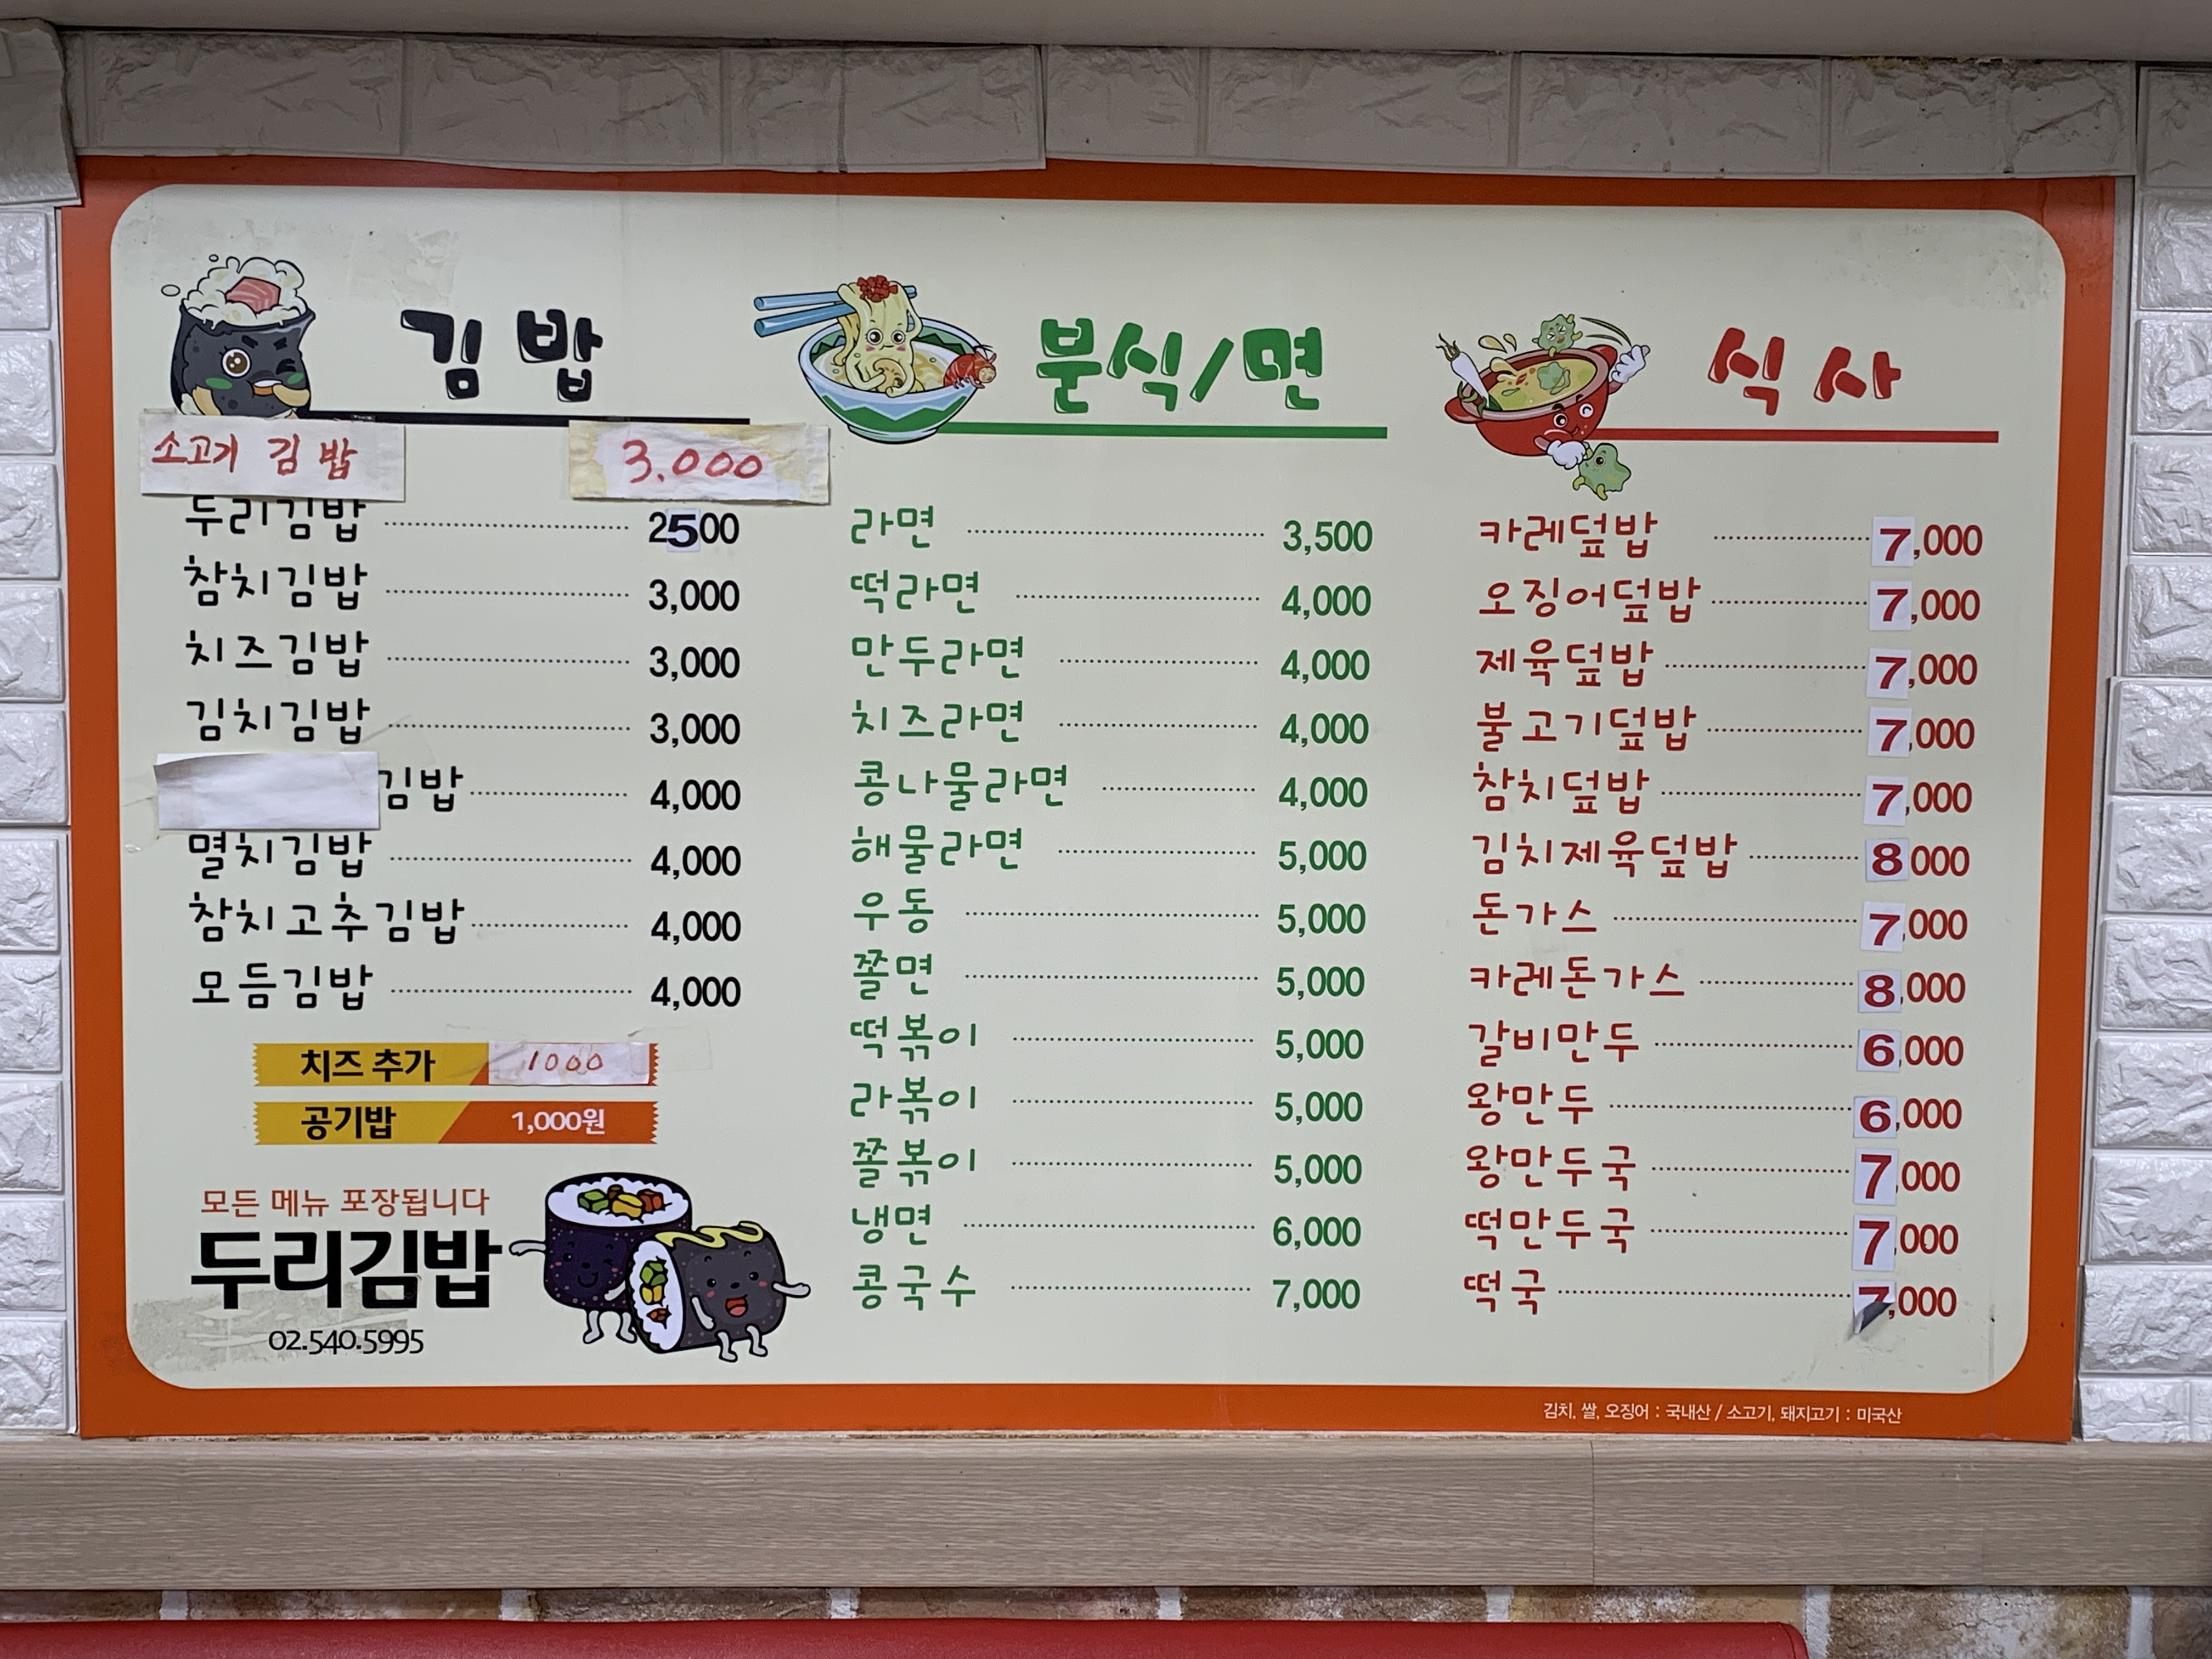 김밥
소고기 김밥 3.000
두리김밥 2500
참치김밥 3,000
치즈김밥 3,000
김치김밥 3,000
김밥 4,000
멸치김밥 4,000
참치고추김밥 4,000
모듬김밥 4,000
치즈 추가 1000
공기밥 1,000원
모든 메뉴 포장됩니다
두리김밥
02.540.5995
분식/면
라면 3,500
떡라면 4,000
만두라면 4,000
치즈라면 4,000
콩나물라면 4,000
해물라면 5,000
우동 5,000
쫄면 5,000
떡볶이 5,000
라볶이 5,000
쫄볶이 5,000
냉면 6,000
콩국수 7,000
식사
카레덮밥 7,000
오징어덮밥 7,000
제육덮밥 7,000
불고기덮밥 7,000
참치덮밥 7,000
김치제육덮밥 8000
돈가스 7,000
카레돈가스 8,000
갈비만두 6,000
왕만두 6,000
왕만두국 7,000
떡만두국 7,000
떡국 7,000
김치, 쌀, 오징어 : 국내산 / 소고기, 돼지고기 : 미국산